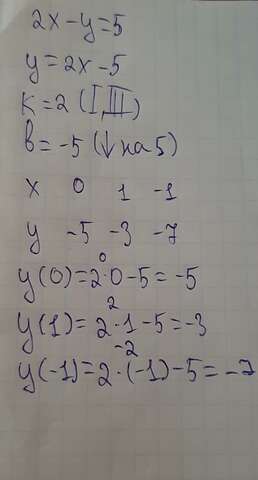 2x-y=5
y=2x-5
K=2 (I, III)
b=-5 (↓ на 5)
x 0 1 -1
y -5 -3 -7
0
y(0)=2·0-5=-5
2
y(1)=2·1-5=-3
-2
y(-1)=2·(-1)-5=-7